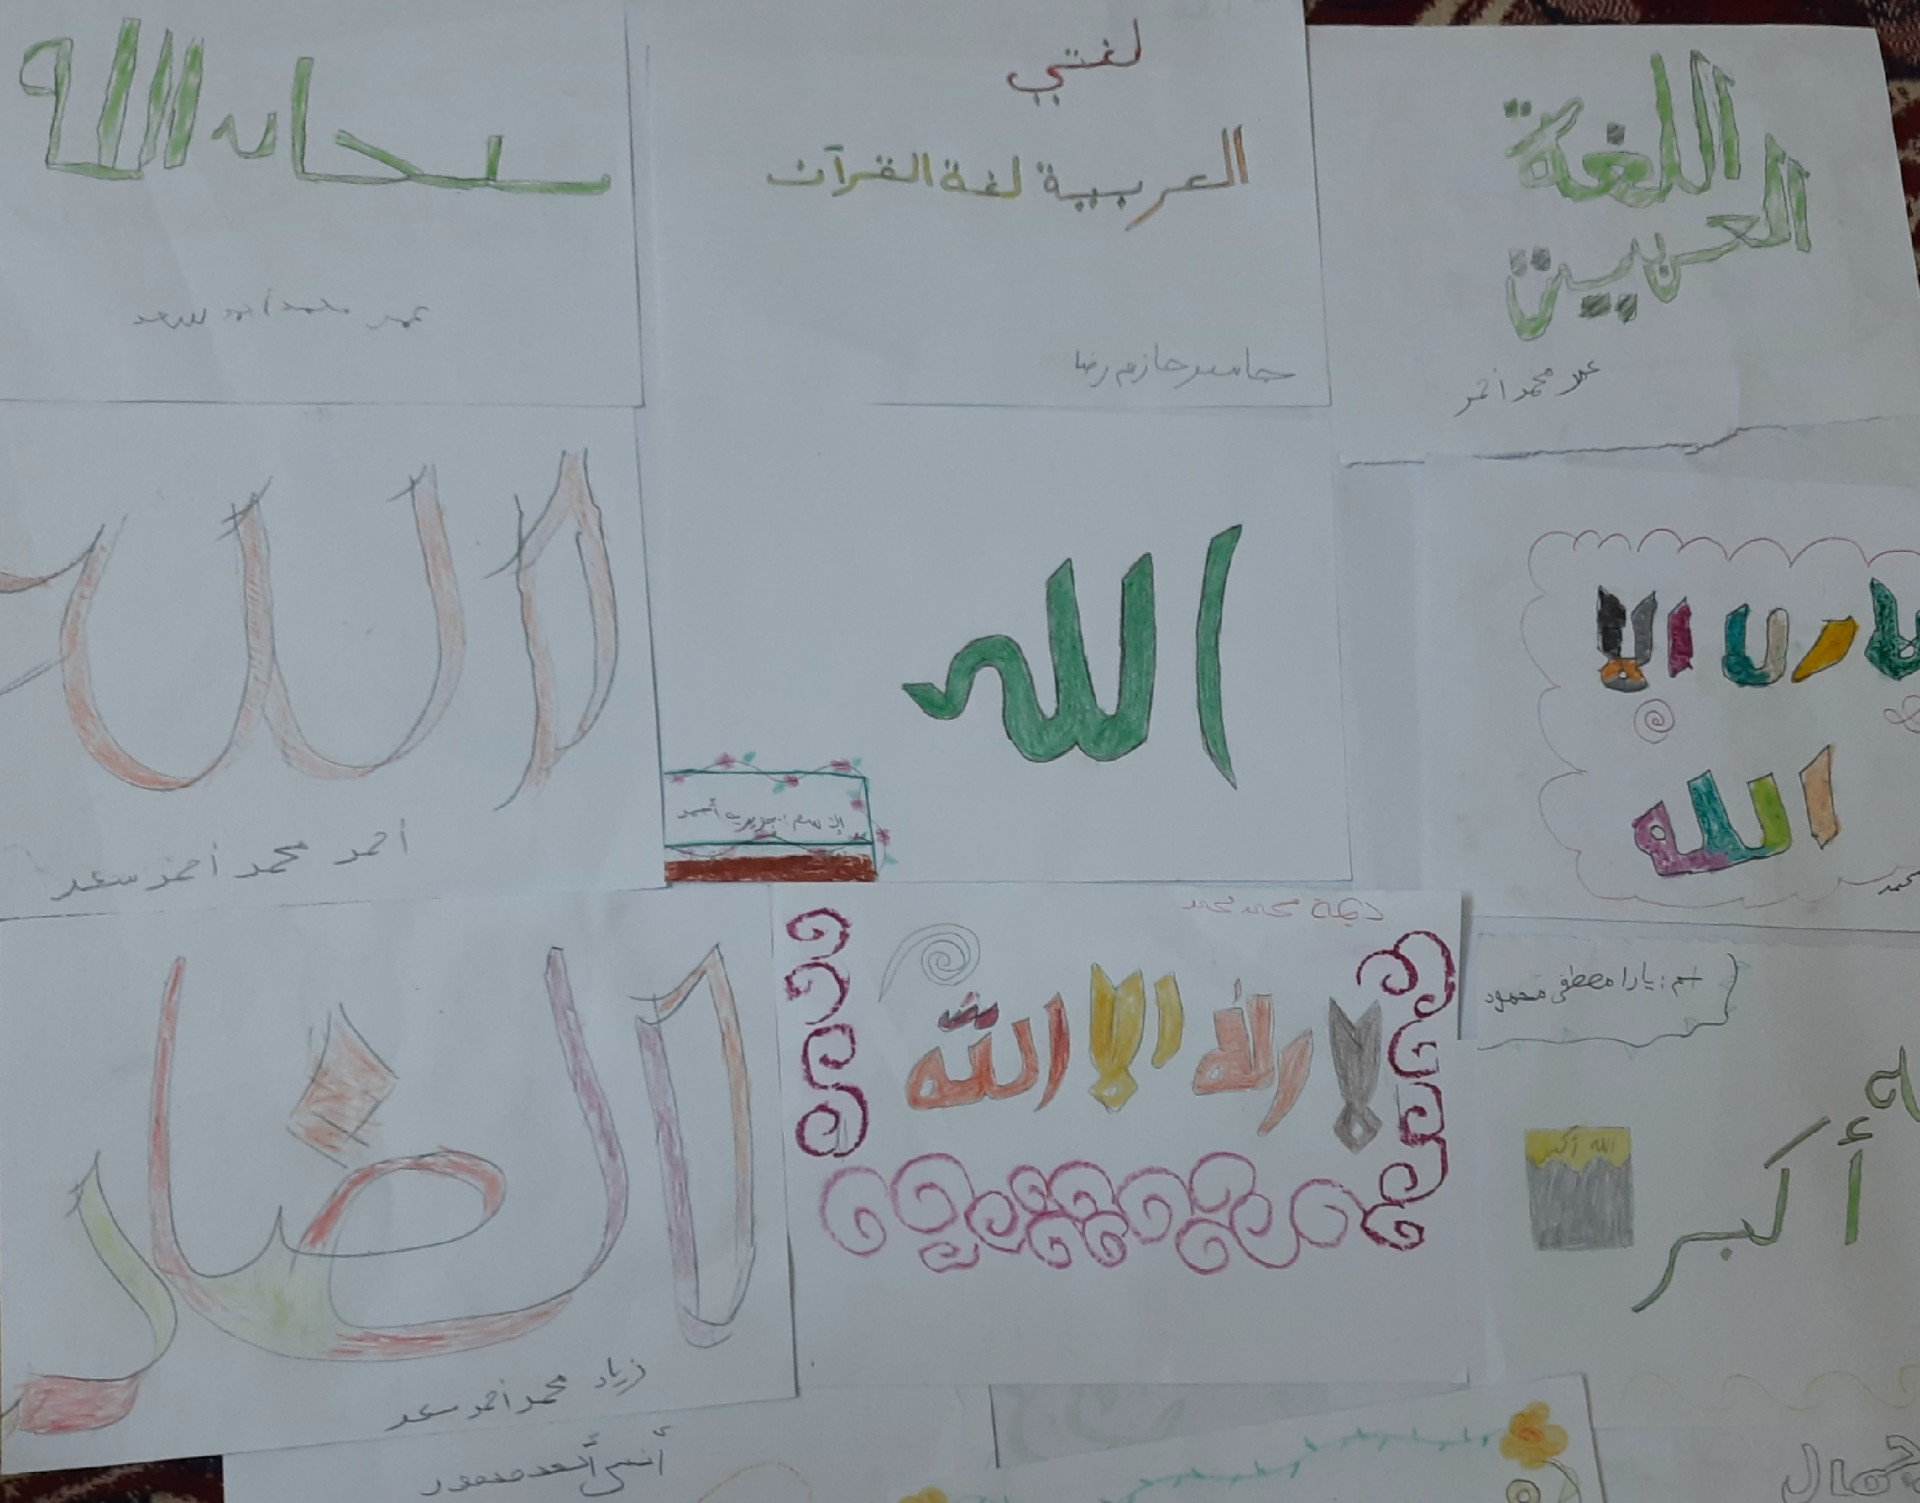 سبحان الله
عمر محمد أبو سعد
لغتي
العربية لغة القرآن
جاسر حازم رضا
اللغة
العربية
محمد أحمر
الله
أحمد محمد أحمد سعد
الله
الإسم: جويرية أحمد
لا إله إلا
الله
محمد
الضا
زياد محمد أحمد سعد
لا إله إلا الله
اسم: يارا مصطفى محمود
أكبر
الله أكبر
أنس أسعد منصور
جمال